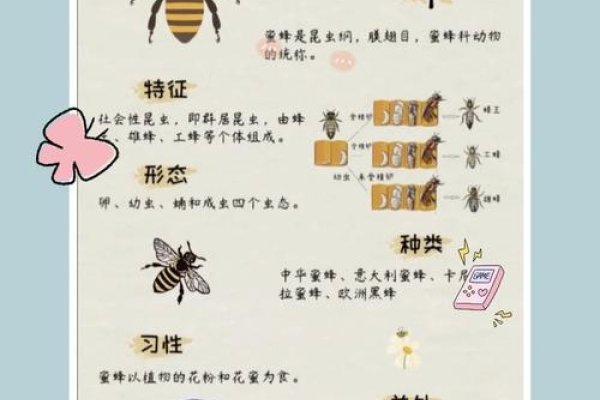 蜜蜂是昆虫纲，膜翅目，蜜蜂科动物
的统称。
特征
社会性昆虫，即群居昆虫，由蜂
、雄蜂、工蜂等个体组成。
受精卵
蜂王
受精卵
工蜂
幼虫
未受精卵
雄蜂
形态
卵、幼虫、蛹和成虫四个虫态。
种类
中华蜜蜂、意大利蜜蜂、卡尼
拉蜜蜂、欧洲黑蜂
GAME
习性
蜜蜂以植物的花粉和花蜜为食。